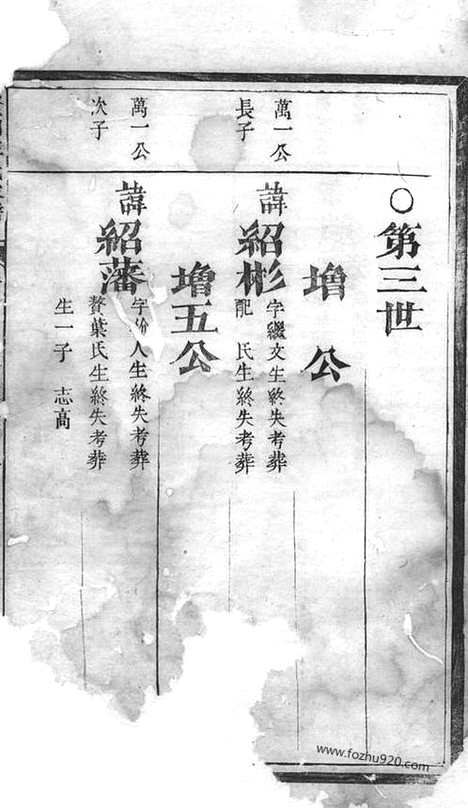 ○第三世
增 公
萬一公
長子
諱
紹彬
字繼文生終失考葬
配 氏生終失考葬
增五公
萬一公
次子
諱
紹藩
字份人生終失考葬
贅葉氏生終失考葬
生一子 志高
www.fozhu920.com